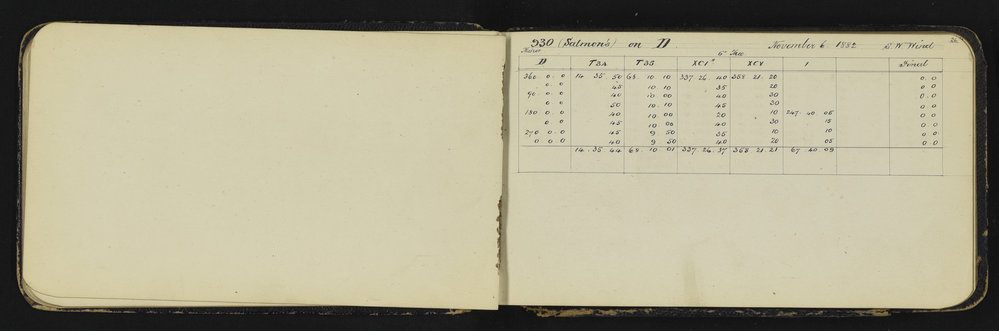 930 (Salmon's) on D November 6 1882 S. W. Wind 26
D TBA TBG XCV 1 Final
360 0. 0 14 35. 50 68. 10 10 337 26. 40 358 21. 20 0. 0
0 0 45 10 10 35 20 0. 0
90 0. 0 40 10 00 40 30 0. 0
0 0 50 10. 10 45 30 0. 0
180 0. 0 40 10. 00 20 10 247. 40 05 0. 0
0 0 45 10. 00 40 30 15 0. 0
270 0. 0 45 9 50 35 10 10 0. 0
0 0. 0 40 9 50 40 20 05 0 0
14. 35. 44 68. 10 01 337 26 37 358 21. 21 67 40 09